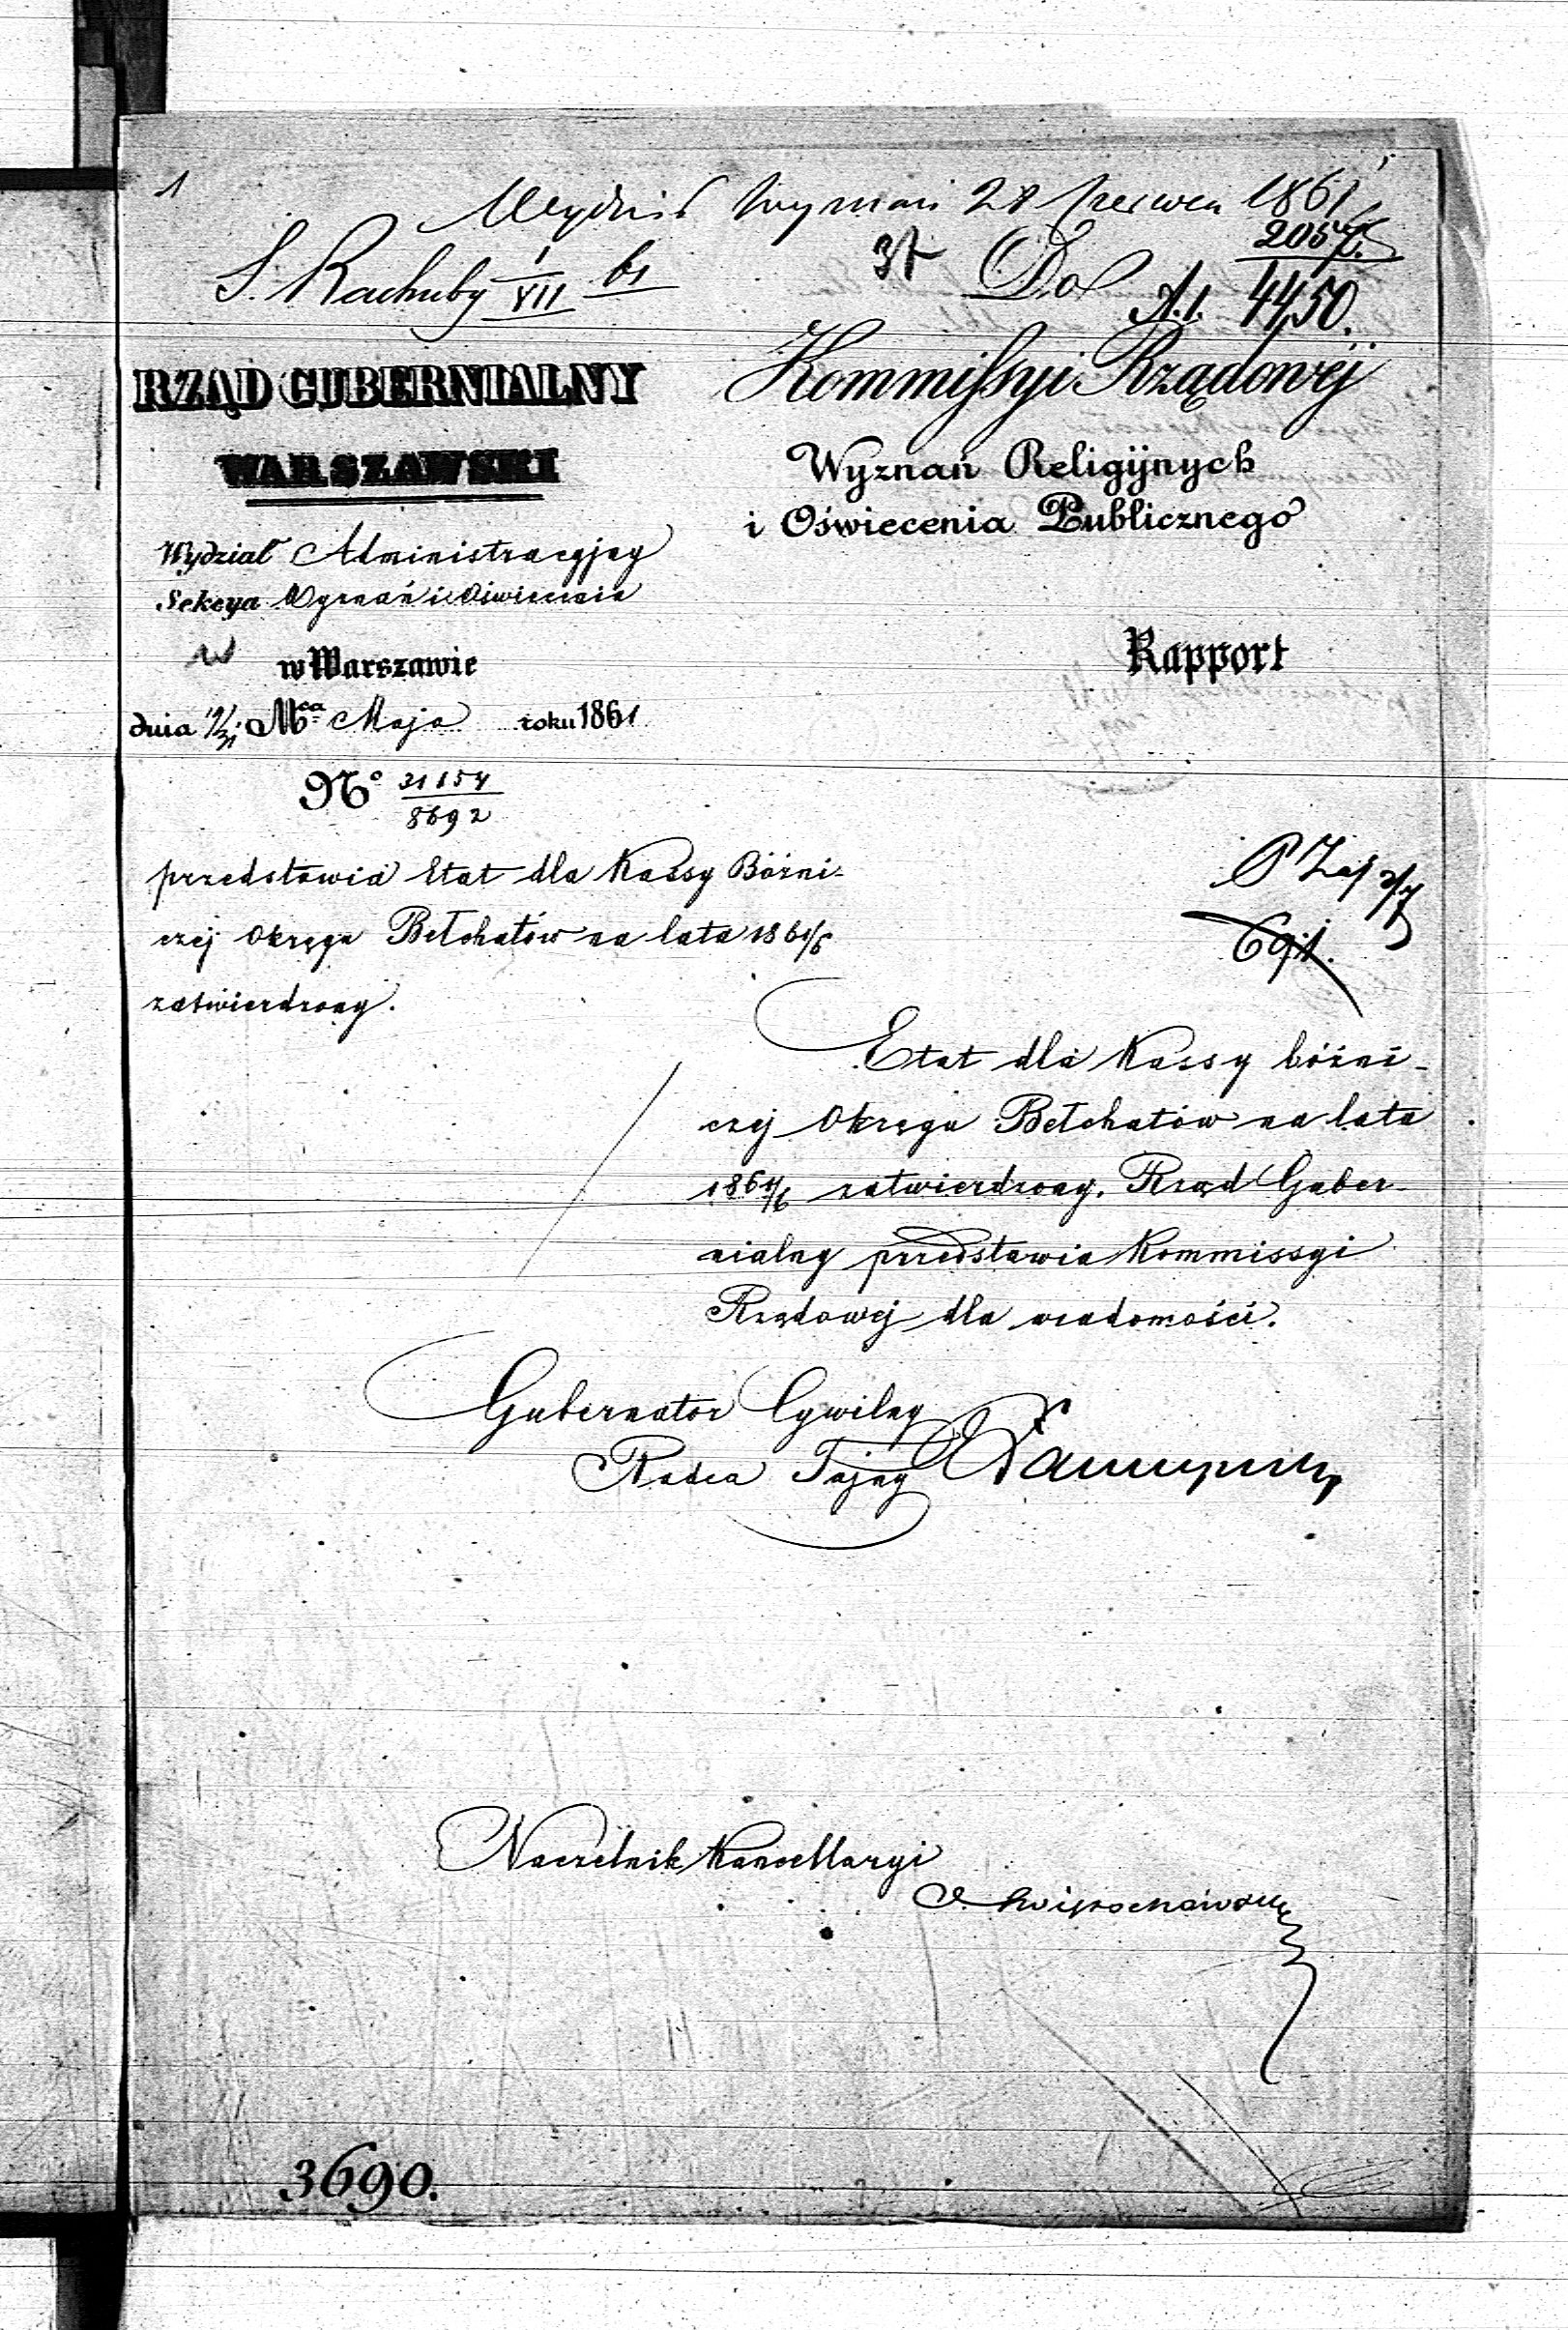 1
28 Czerwca 1861
S. Rachuby I/VII 61
Do
2057
4450.
RZĄD GUBERNIALNY
WARSZAWSKI
Kommissyi Rządowéj
Wyznań Religijnych
i Oświecenia Publicznego
Wydział Administracyjny
Sekcya Wyznań i Oświecenia
w Warszawie
dnia 19/31 Mca Maja roku 1861
No 31154/8692
Rapport
przedstawia Etat dla Kassy Bóżni-
czej Okręgu Bełchatów na lata 1861/6
zatwierdzony.
Etat dla Kassy bóżni-
czej Okręgu Bełchatów na lata
1861/6 zatwierdzony. Rząd Guber-
nialny przedstawia Kommissyi
Rządowej dla wiadomości.
Gubernator Cywilny
Radca Tajny
Naczelnik Kancellaryi
3690.